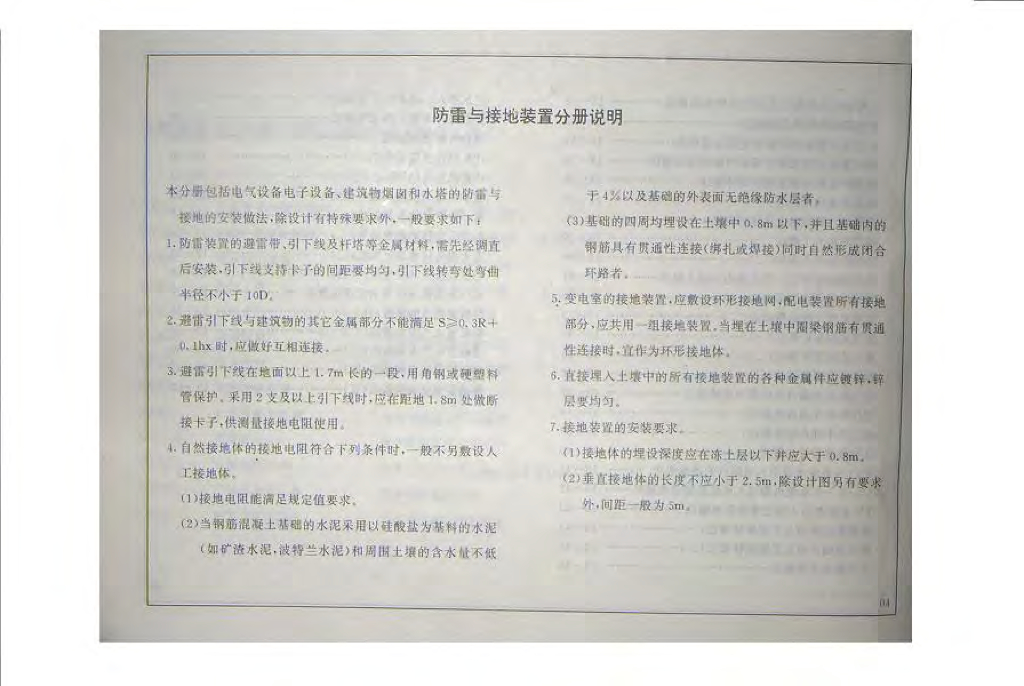 防雷与接地装置分册说明
本分册包括电气设备电子设备、建筑物烟囱和水塔的防雷与
接地的安装做法,除设计有特殊要求外,一般要求如下:
1.防雷装置的避雷带、引下线及杆塔等金属材料,需先经调直
后安装,引下线支持卡子的间距要均匀,引下线转弯处弯曲
半径不小于10D。
2.避雷引下线与建筑物的其它金属部分不能满足S≥0.3R+
0.1hx时,应做好互相连接。
3.避雷引下线在地面以上1.7m长的一段,用角钢或硬塑料
管保护。采用2支及以上引下线时,应在距地1.8m处做断
接卡子,供测量接地电阻使用。
4.自然接地体的接地电阻符合下列条件时,一般不另敷设人
工接地体。
(1)接地电阻能满足规定值要求。
(2)当钢筋混凝土基础的水泥采用以硅酸盐为基料的水泥
(如矿渣水泥,波特兰水泥)和周围土壤的含水量不低
于4%以及基础的外表面无绝缘防水层者。
(3)基础的四周均埋设在土壤中0.8m以下,并且基础内的
钢筋具有贯通性连接(绑扎或焊接)同时自然形成闭合
环路者。
5.变电室的接地装置,应敷设环形接地网,配电装置所有接地
部分,应共用一组接地装置。当埋在土壤中圈梁钢筋有贯通
性连接时,宜作为环形接地体。
6.直接埋入土壤中的所有接地装置的各种金属件应镀锌,锌
层要均匀。
7.接地装置的安装要求。
(1)接地体的埋设深度应在冻土层以下并应大于0.8m。
(2)垂直接地体的长度不应小于2.5m,除设计图另有要求
外,间距一般为5m。